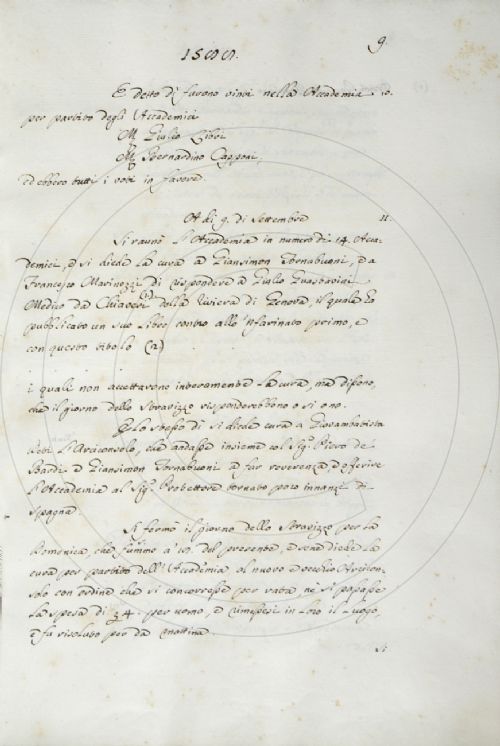 1588.
9.
E detto dì furono vinti nella Accademia 10.
per partito degli Accademici
M. Giulio Libri
M. Bernardino Capponi,
ed ebbero tutti i voti in favore.
A dì 9. di Settembre 11.
Si raunò l'Accademia in numero di 14. Acca-
demici, e si diede la cura a Giansimon Tornabuoni, e a
Francesco Marinozzi di rispondere a Giulio Guastavini
Medico da della Riviera di Genova, il quale ha
pubblicato un suo libro contro allo 'nfarinato primo, e
con questo titolo (2)
i quali non accettarono interamente la cura, ma disono,
che il giorno dello Stravizzo risponderebbono o sì o no.
Lo stesso dì si diede cura a Giovambatista
Deti l'Arciconsolo, che andasse insieme col Sig. Piero de
Bardi e Giansimon Tornabuoni a far reverenza, e offerire
l'Accademia al Sig. Protettore tornato poco innanzi di
Spagna.
Si fermò il giorno dello Stravizzo per la
Domenica che fummo a' del presente, e sene diede la
cura per partito dell'Accademia al nuovo e vecchio Arcicon-
solo con ordine che si concorresse per rata, nè si passasse
la spesa di 4. per uomo, e rimessesi in loro il luogo,
e fu risoluto per da mattina.
Si